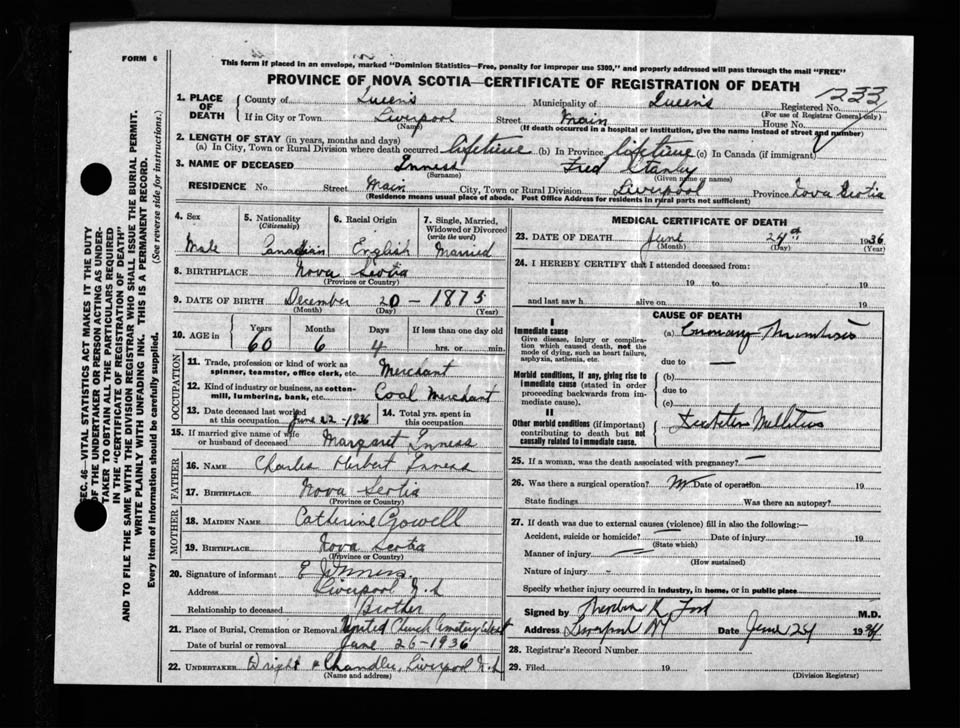 FORM 6
This form if placed in an envelope, marked "Dominion Statistics—Free, penalty for improper use $300," and properly addressed will pass through the mail "FREE"
PROVINCE OF NOVA SCOTIA—CERTIFICATE OF REGISTRATION OF DEATH
1233
1. PLACE OF DEATH
County of Queen's Municipality of Queen's Registered No.
(For use of Registrar General only)
If in City or Town Liverpool Street Main House No.
(Name) (If death occurred in a hospital or institution, give the name instead of street and number)
2. LENGTH OF STAY (in years, months and days)
(a) In City, Town or Rural Division where death occurred lifetime (b) In Province lifetime (c) In Canada (if immigrant)
3. NAME OF DECEASED Inness Fred Stanley
(Surname) (Given name or names)
RESIDENCE No Street Main City, Town or Rural Division Liverpool Province Nova Scotia
(Residence means usual place of abode. Post Office Address for residents in rural parts not sufficient)
4. Sex 5. Nationality (Citizenship) 6. Racial Origin 7. Single, Married, Widowed or Divorced (write the word)
Male Canadian English Married
8. BIRTHPLACE Nova Scotia
(Province or Country)
9. DATE OF BIRTH December 20 - 1875
(Month) (Day) (Year)
10. AGE in Years Months Days If less than one day old
60 6 4 hrs. or min.
OCCUPATION
11. Trade, profession or kind of work as spinner, teamster, office clerk, etc. Merchant
12. Kind of industry or business, as cotton-mill, lumbering, bank, etc. Coal Merchant
13. Date deceased last worked at this occupation June 22-1936
14. Total yrs. spent in this occupation
15. If married give name of wife or husband of deceased Margaret Inness
FATHER
16. NAME Charles Herbert Inness
17. BIRTHPLACE Nova Scotia
(Province or Country)
MOTHER
18. MAIDEN NAME Catherine Gowell
19. BIRTHPLACE Nova Scotia
(Province or Country)
20. Signature of informant E W Inness
Address Liverpool N.S
Relationship to deceased Brother
21. Place of Burial, Cremation or Removal United Church Cemetery West
Date of burial or removal June 26-1936
22. UNDERTAKER Wright & Chandler, Liverpool N.S
(Name and address)
MEDICAL CERTIFICATE OF DEATH
23. DATE OF DEATH June 24th 1936
(Month) (Day) (Year)
24. I HEREBY CERTIFY that I attended deceased from:
19 to 19
and last saw h alive on 19
CAUSE OF DEATH
I
Immediate cause
Give disease, injury or complication which caused death, not the mode of dying, such as heart failure, asphyxia, asthenia, etc.
(a) Coronary Thrombosis
due to —
Morbid conditions, if any, giving rise to immediate cause (stated in order proceeding backwards from immediate cause).
(b)
due to
(c)
II
Other morbid conditions (if important) contributing to death but not causally related to immediate cause.
Diabetes Mellitus
25. If a woman, was the death associated with pregnancy? —
26. Was there a surgical operation? No Date of operation 19
State findings Was there an autopsy?
27. If death was due to external causes (violence) fill in also the following:—
Accident, suicide or homicide? Date of injury 19
(State which)
Manner of injury
(How sustained)
Nature of injury
Specify whether injury occurred in industry, in home, or in public place
Signed by Ford M.D.
Address Liverpool NS Date June 24 1936
28. Registrar's Record Number
29. Filed 19
(Division Registrar)
SEC. 46—VITAL STATISTICS ACT MAKES IT THE DUTY
OF THE UNDERTAKER OR PERSON ACTING AS UNDERTAKER
TO OBTAIN ALL THE PARTICULARS REQUIRED
IN THE "CERTIFICATE OF REGISTRATION OF DEATH"
AND TO FILE THE SAME WITH THE DIVISION REGISTRAR WHO SHALL ISSUE THE BURIAL PERMIT.
WRITE PLAINLY WITH UNFADING INK. THIS IS A PERMANENT RECORD.
Every item of information should be carefully supplied. (See reverse side for instructions.)